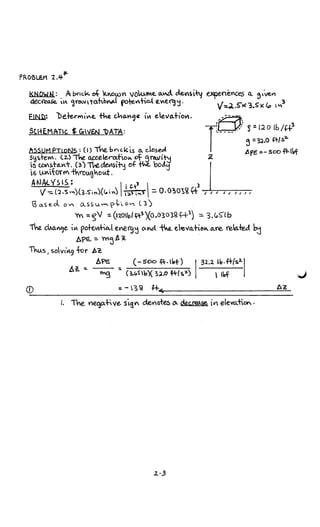 PROBLEM 2.4*
KNOWN: A brick of known volume and density experiences a given
decrease in gravitational potential energy.
V=2.5x3.5x6 in³
FIND: Determine the change in elevation.
SCHEMATIC & GIVEN DATA:
ρ = 120 lb/ft³
g = 32.0 ft/s²
ΔPE = -500 ft·lbf
z
ASSUMPTIONS: (1) The brick is a closed
system. (2) The acceleration of gravity
is constant. (3) The density of the body
is uniform throughout.
ANALYSIS:
V = (2.5 in)(3.5 in)(6 in) | 1 ft³ / 12³ in³ | = 0.03038 ft³
Based on assumption (3)
m = ρV = (120 lb/ft³)(0.03038 ft³) = 3.65 lb
The change in potential energy and the elevation are related by
ΔPE = mgΔz
Thus, solving for Δz
Δz = ΔPE / mg = (-500 ft·lbf) / (3.65 lb)(32.0 ft/s²) | 32.2 lb·ft/s² / 1 lbf |
① = -138 ft Δz
1. The negative sign denotes a decrease in elevation.
2-3